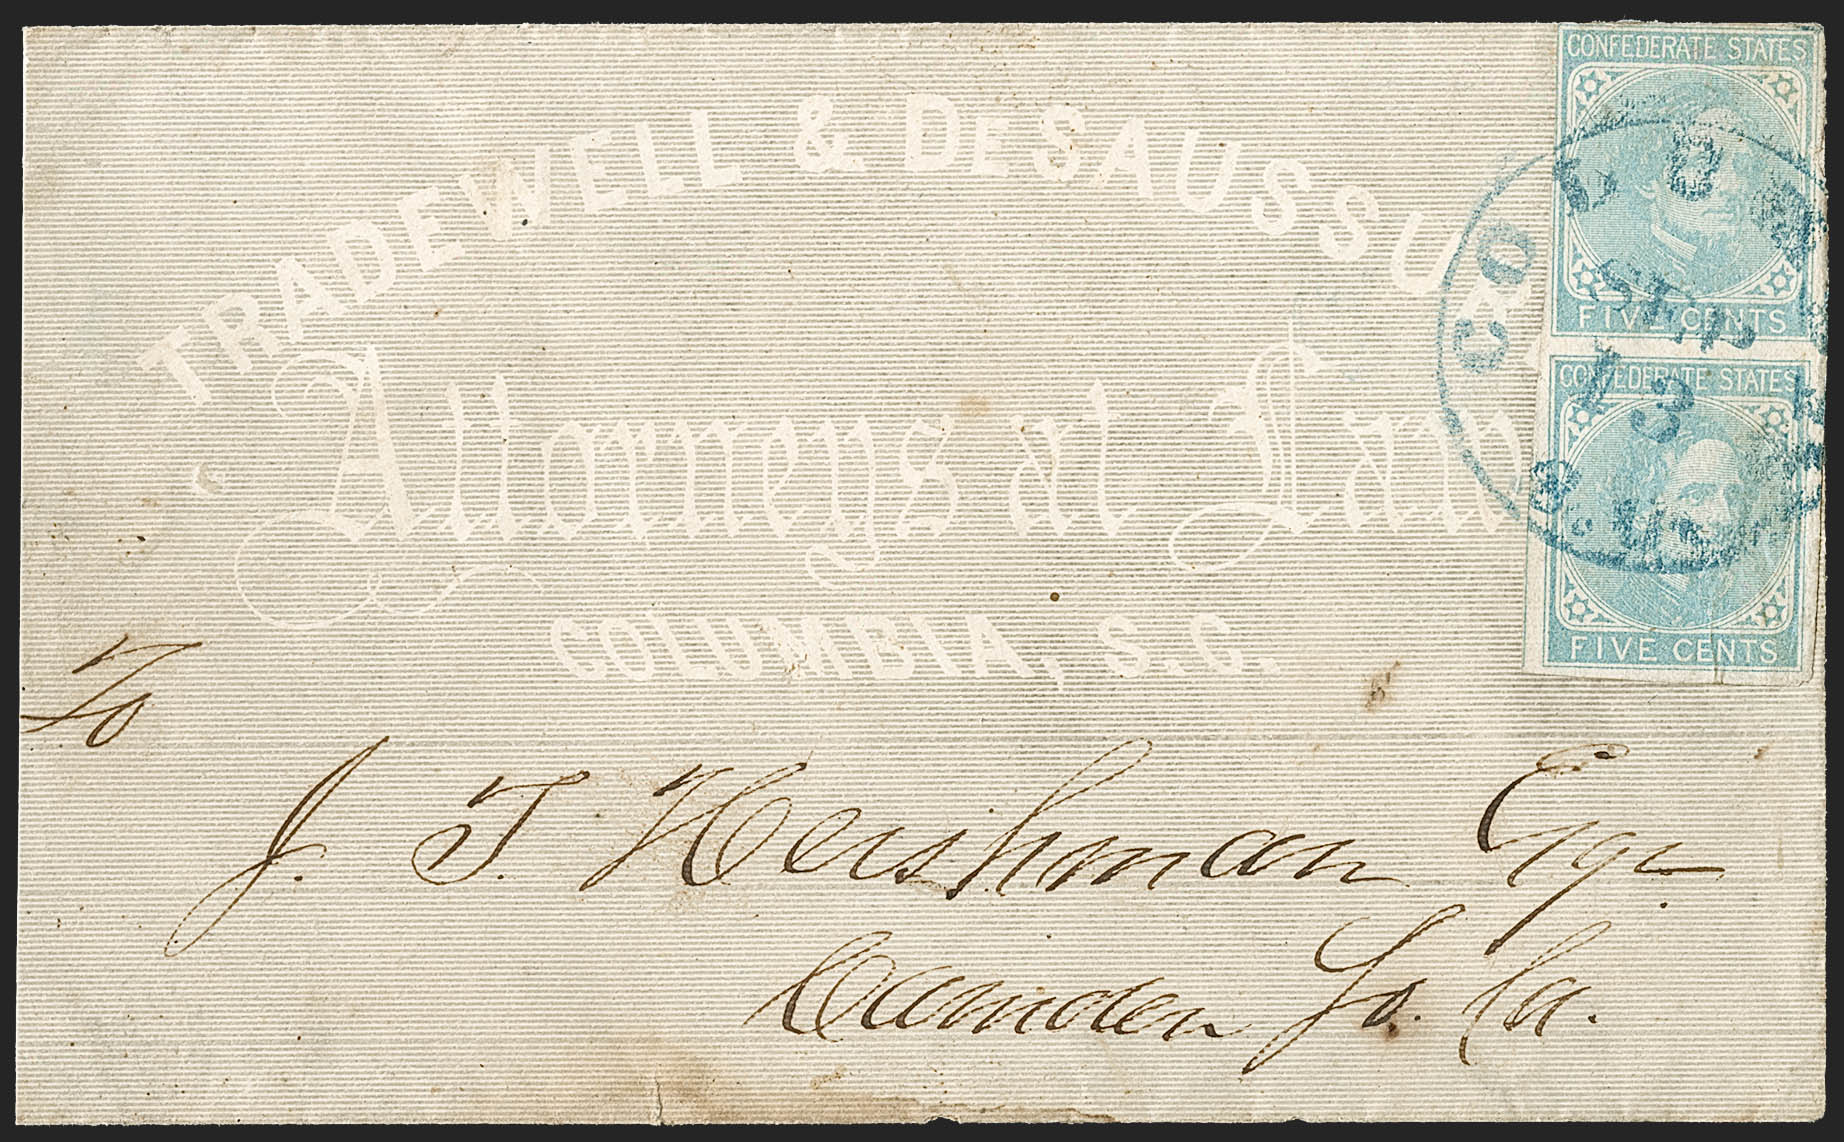 TRADEWELL & DESAUSSU
Attorneys at Law
COLUMBIA, S.C.
CONFEDERATE STATES
FIVE CENTS
CONFEDERATE STATES
FIVE CENTS
COLUM
SEP
13
To
J. T. Hershman Esqr
Camden So. Ca.